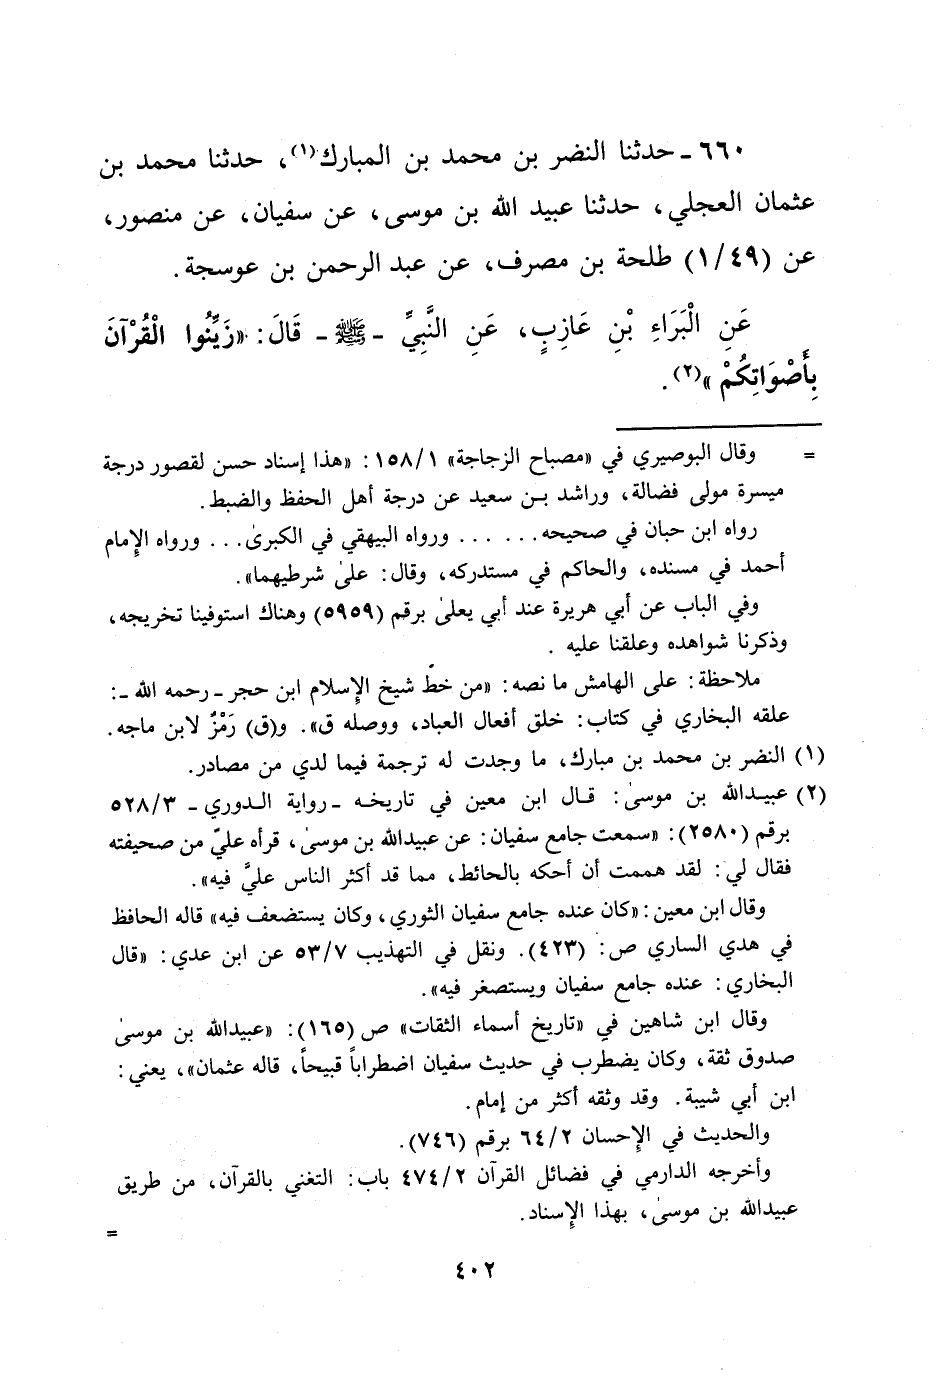 ٦٦٠ - حدثنا النضر بن محمد بن المبارك(١)، حدثنا محمد بن
عثمان العجلي، حدثنا عبيد الله بن موسى، عن سفيان، عن منصور،
عن (١/٤٩) طلحة بن مصرف، عن عبد الرحمن بن عوسجة.
عَنِ الْبَرَاءِ بْنِ عَازِبٍ، عَنِ النَّبِيِّ - ﷺ - قَالَ: «زَيِّنُوا الْقُرْآنَ
بِأَصْوَاتِكُمْ»(٢).
= وقال البوصيري في «مصباح الزجاجة» ١/١٥٨: «هذا إسناد حسن لقصور درجة
ميسرة مولى فضالة، وراشد بن سعيد عن درجة أهل الحفظ والضبط.
رواه ابن حبان في صحيحه... ... ورواه البيهقي في الكبرىٰ... ورواه الإمام
أحمد في مسنده، والحاكم في مستدركه، وقال: علىٰ شرطيهما».
وفي الباب عن أبي هريرة عند أبي يعلىٰ برقم (٥٩٥٩) وهناك استوفينا تخريجه،
وذكرنا شواهده وعلقنا عليه .
ملاحظة: على الهامش ما نصه: «من خطّ شيخ الإسلام ابن حجر - رحمه الله -:
علقه البخاري في كتاب: خلق أفعال العباد، ووصله ق». و(ق) رَمْزٌ لابن ماجه.
(١) النضر بن محمد بن مبارك، ما وجدت له ترجمة فيما لدي من مصادر.
(٢) عبيدالله بن موسىٰ: قال ابن معين في تاريخه - رواية الدوري - ٥٢٨/٣
برقم (٢٥٨٠): «سمعت جامع سفيان: عن عبيدالله بن موسىٰ، قرأه عليّ من صحيفته
فقال لي: لقد هممت أن أحكه بالحائط، مما قد أكثر الناس عليَّ فيه».
وقال ابن معين: «كان عنده جامع سفيان الثوري، وكان يستضعف فيه» قاله الحافظ
في هدي الساري ص: (٤٢٣). ونقل في التهذيب ٥٣/٧ عن ابن عدي: «قال
البخاري: عنده جامع سفيان ويستصغر فيه».
وقال ابن شاهين في «تاريخ أسماء الثقات» ص (١٦٥): «عبيدالله بن موسىٰ
صدوق ثقة، وكان يضطرب في حديث سفيان اضطراباً قبيحاً، قاله عثمان»، يعني:
ابن أبي شيبة. وقد وثقه أكثر من إمام.
والحديث في الإحسان ٦٤/٢ برقم (٧٤٦).
وأخرجه الدارمي في فضائل القرآن ٤٧٤/٢ باب: التغني بالقرآن، من طريق
عبيدالله بن موسىٰ، بهذا الإسناد.
=
٤٠٢